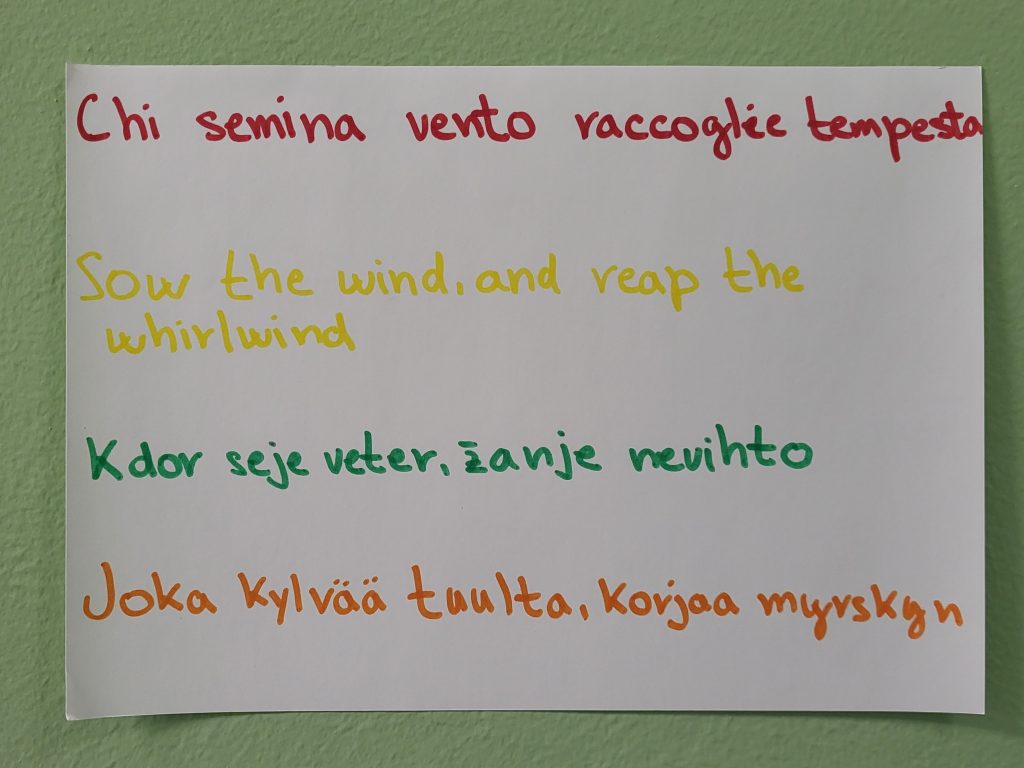 Chi semina vento raccoglie tempesta
Sow the wind, and reap the
whirlwind
Kdor seje veter, žanje nevihto
Joka kylvää tuulta, korjaa myrskyn